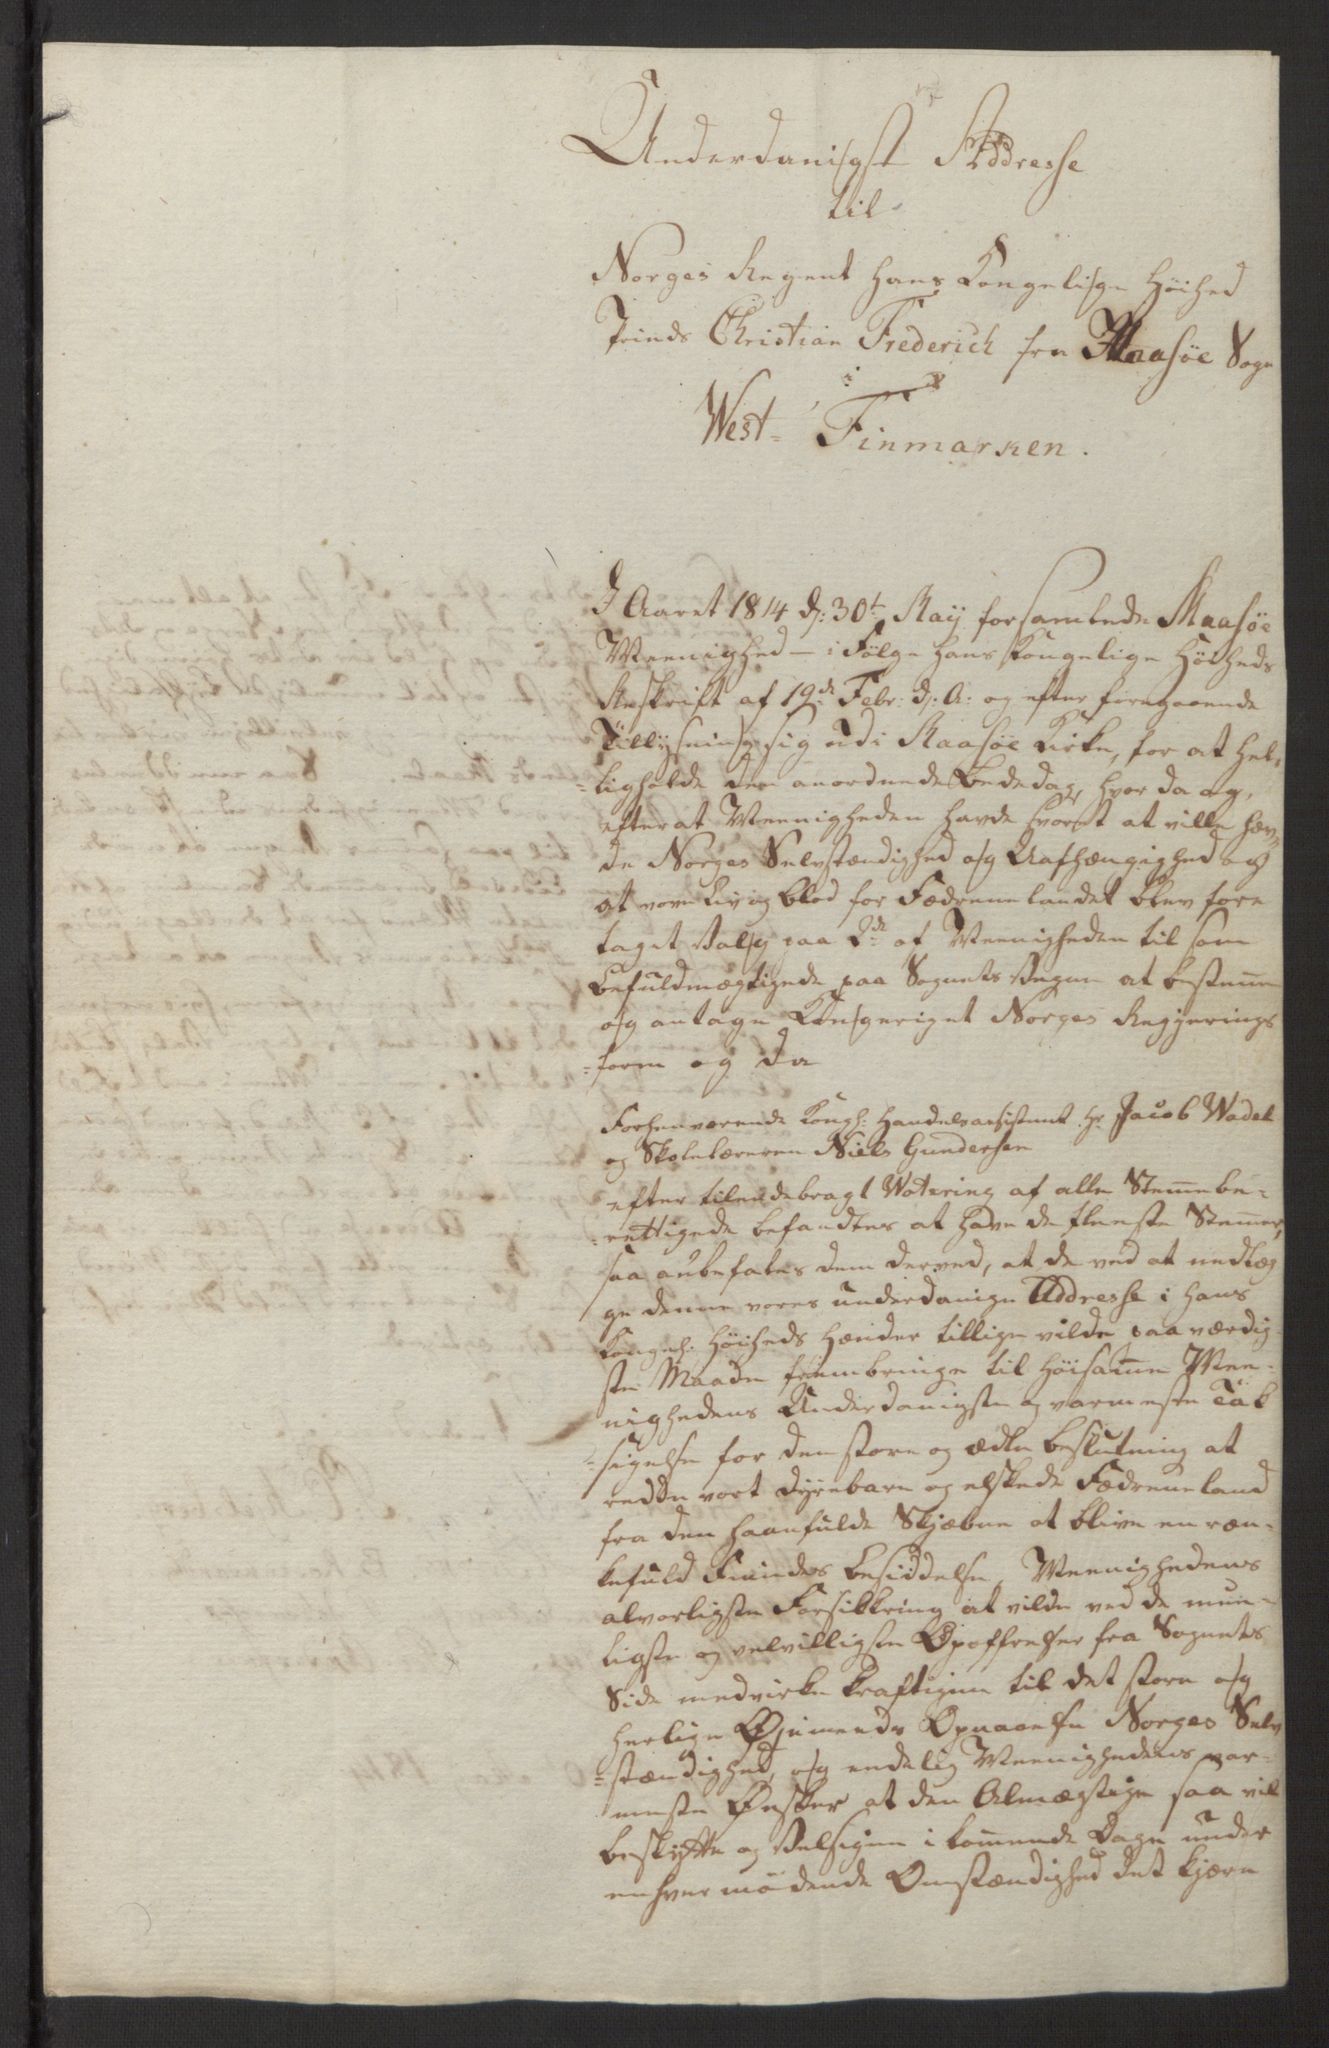 Underdanigst Addresse
til
Norges Regent Hans Kongelige Höihed
Prinds Christian Frederich fra Maasöe Sogn
i
West- Finmarken.
I Aaret 1814 d: 30t May forsamlede Maasöe
Meenighed - i Følge Hans Kongelige Höiheds
Reskript af 19de Febr: d: A: og efter foregaaende
Tillysning sig udi Maasöe Kirke, for at hel-
-ligholde den anordnede Bededag, hvorda og,
efterat Meenigheden havde svoret at ville hæv-
de Norges Selvstændighed og Uafhængighed og
at vove Liv og Blod for Fædrenelandet blev fore
taget Valg paa 2de af Meenigheden til som
befuldmægtigede paa Sognets Vegne at bestemme
og antage Kongeriget Norges Regjerings
-form og da
Forhenværende Kongl: Handelsassistent Hr Jacob Wadel
og Skolelæreren Niels Gundersen
efter tilendebragt Votering af alle Stemmebe-
-rettigede befandtes at have de fleeste Stemmer,
saa anbefales dem derved, at de ved at nedlæg
ge denne vores underdanige Addresse i Hans
Kongel: Höiheds Hænder tillige vilde paa værdig-
ste Maade frembringe til Höisamme Mee-
nighedens Underdanigste og varmeste Tak
-sigelse for den store og ædle Beslutning at
redde vort dyrebare og elskede Fædreneland
fra den haanfulde Skjæbne at blive en ræn-
kefuld Fiendes Besiddelse, Meenighedens
alvorligste Forsikkring at vilde ved de mue-
ligste og velvilligste Opoffrelser fra Sognets
Side medvirke kraftigen til det store og
herlige Øjemeds Opnaaelse Norges Selv
-stændighed, og endelig Meenighedens var-
meste Ønsker at den Almægtige saa vil
beskytte og Velsigne i kommende Dage under
enhver mødende Omstændighed det kjære